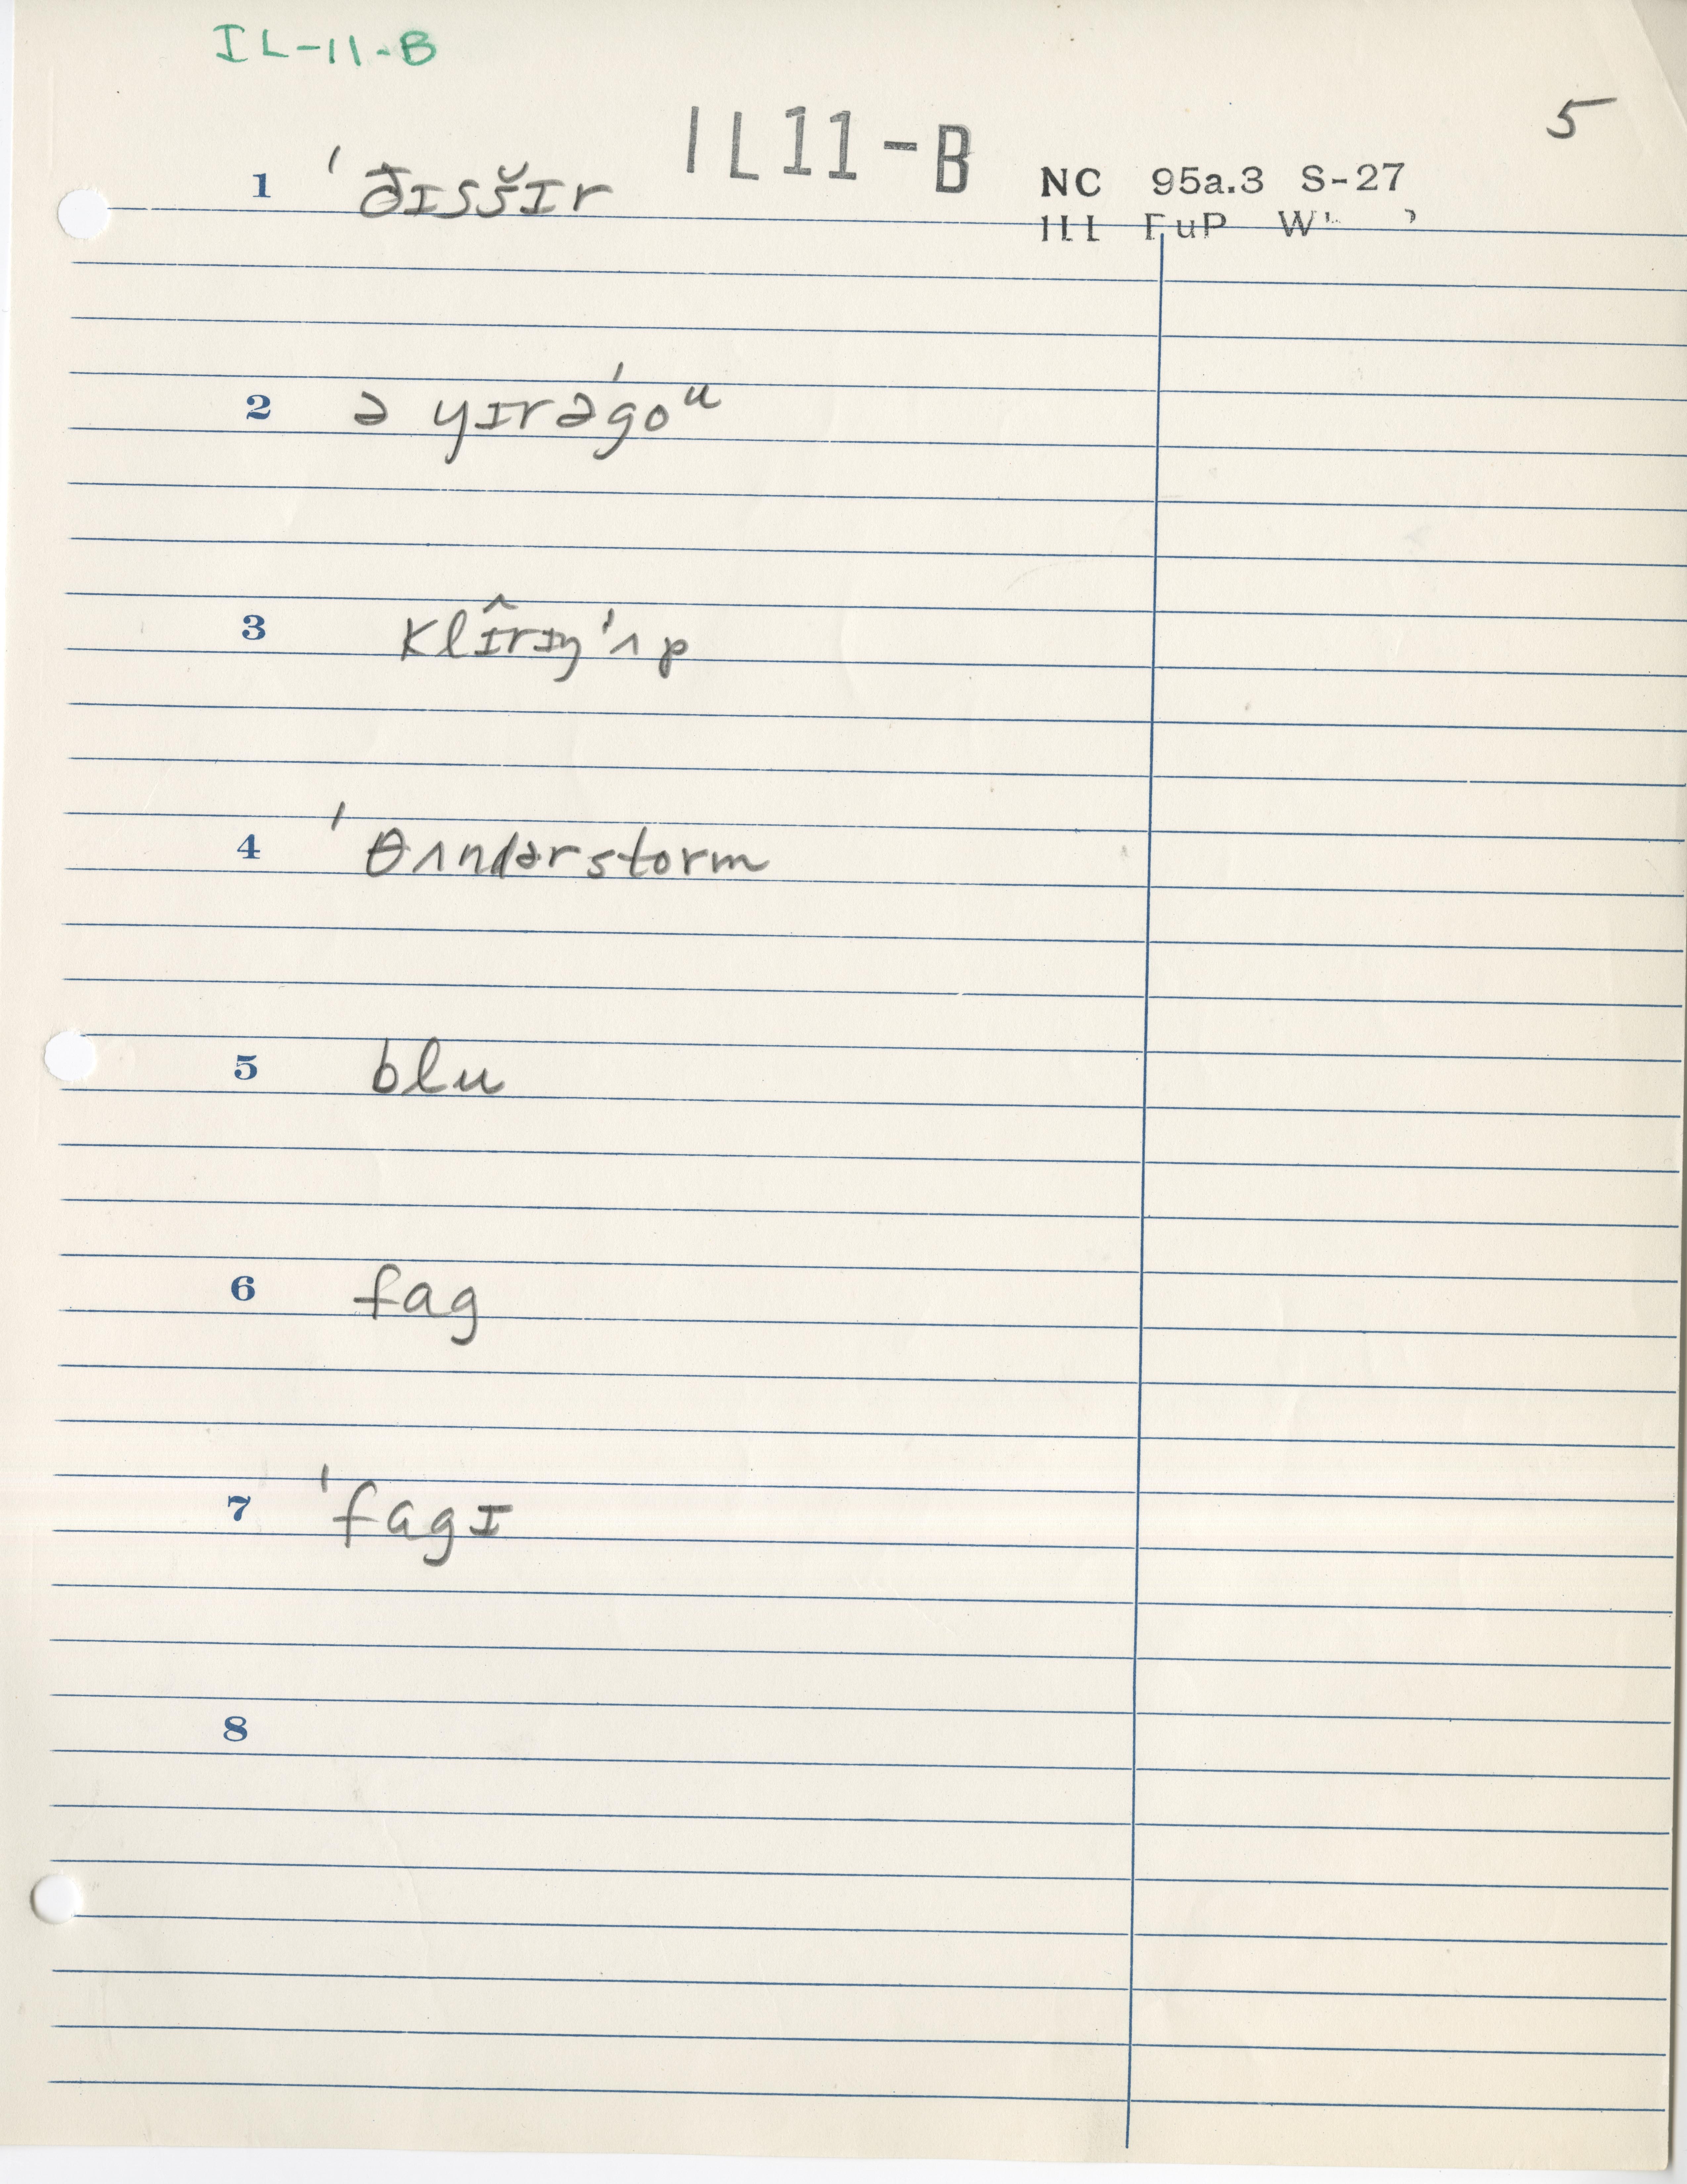 IL-11-B
IL11-B
5
NC 95a.3 S-27
1 ˈðɪsšɪr
2 ə yɪrəˈgoᵘ
3 klɪ̂rɪŋ ˈʌp
4 ˈθʌndərstorm
5 blu
6 fag
7 ˈfagɪ
8